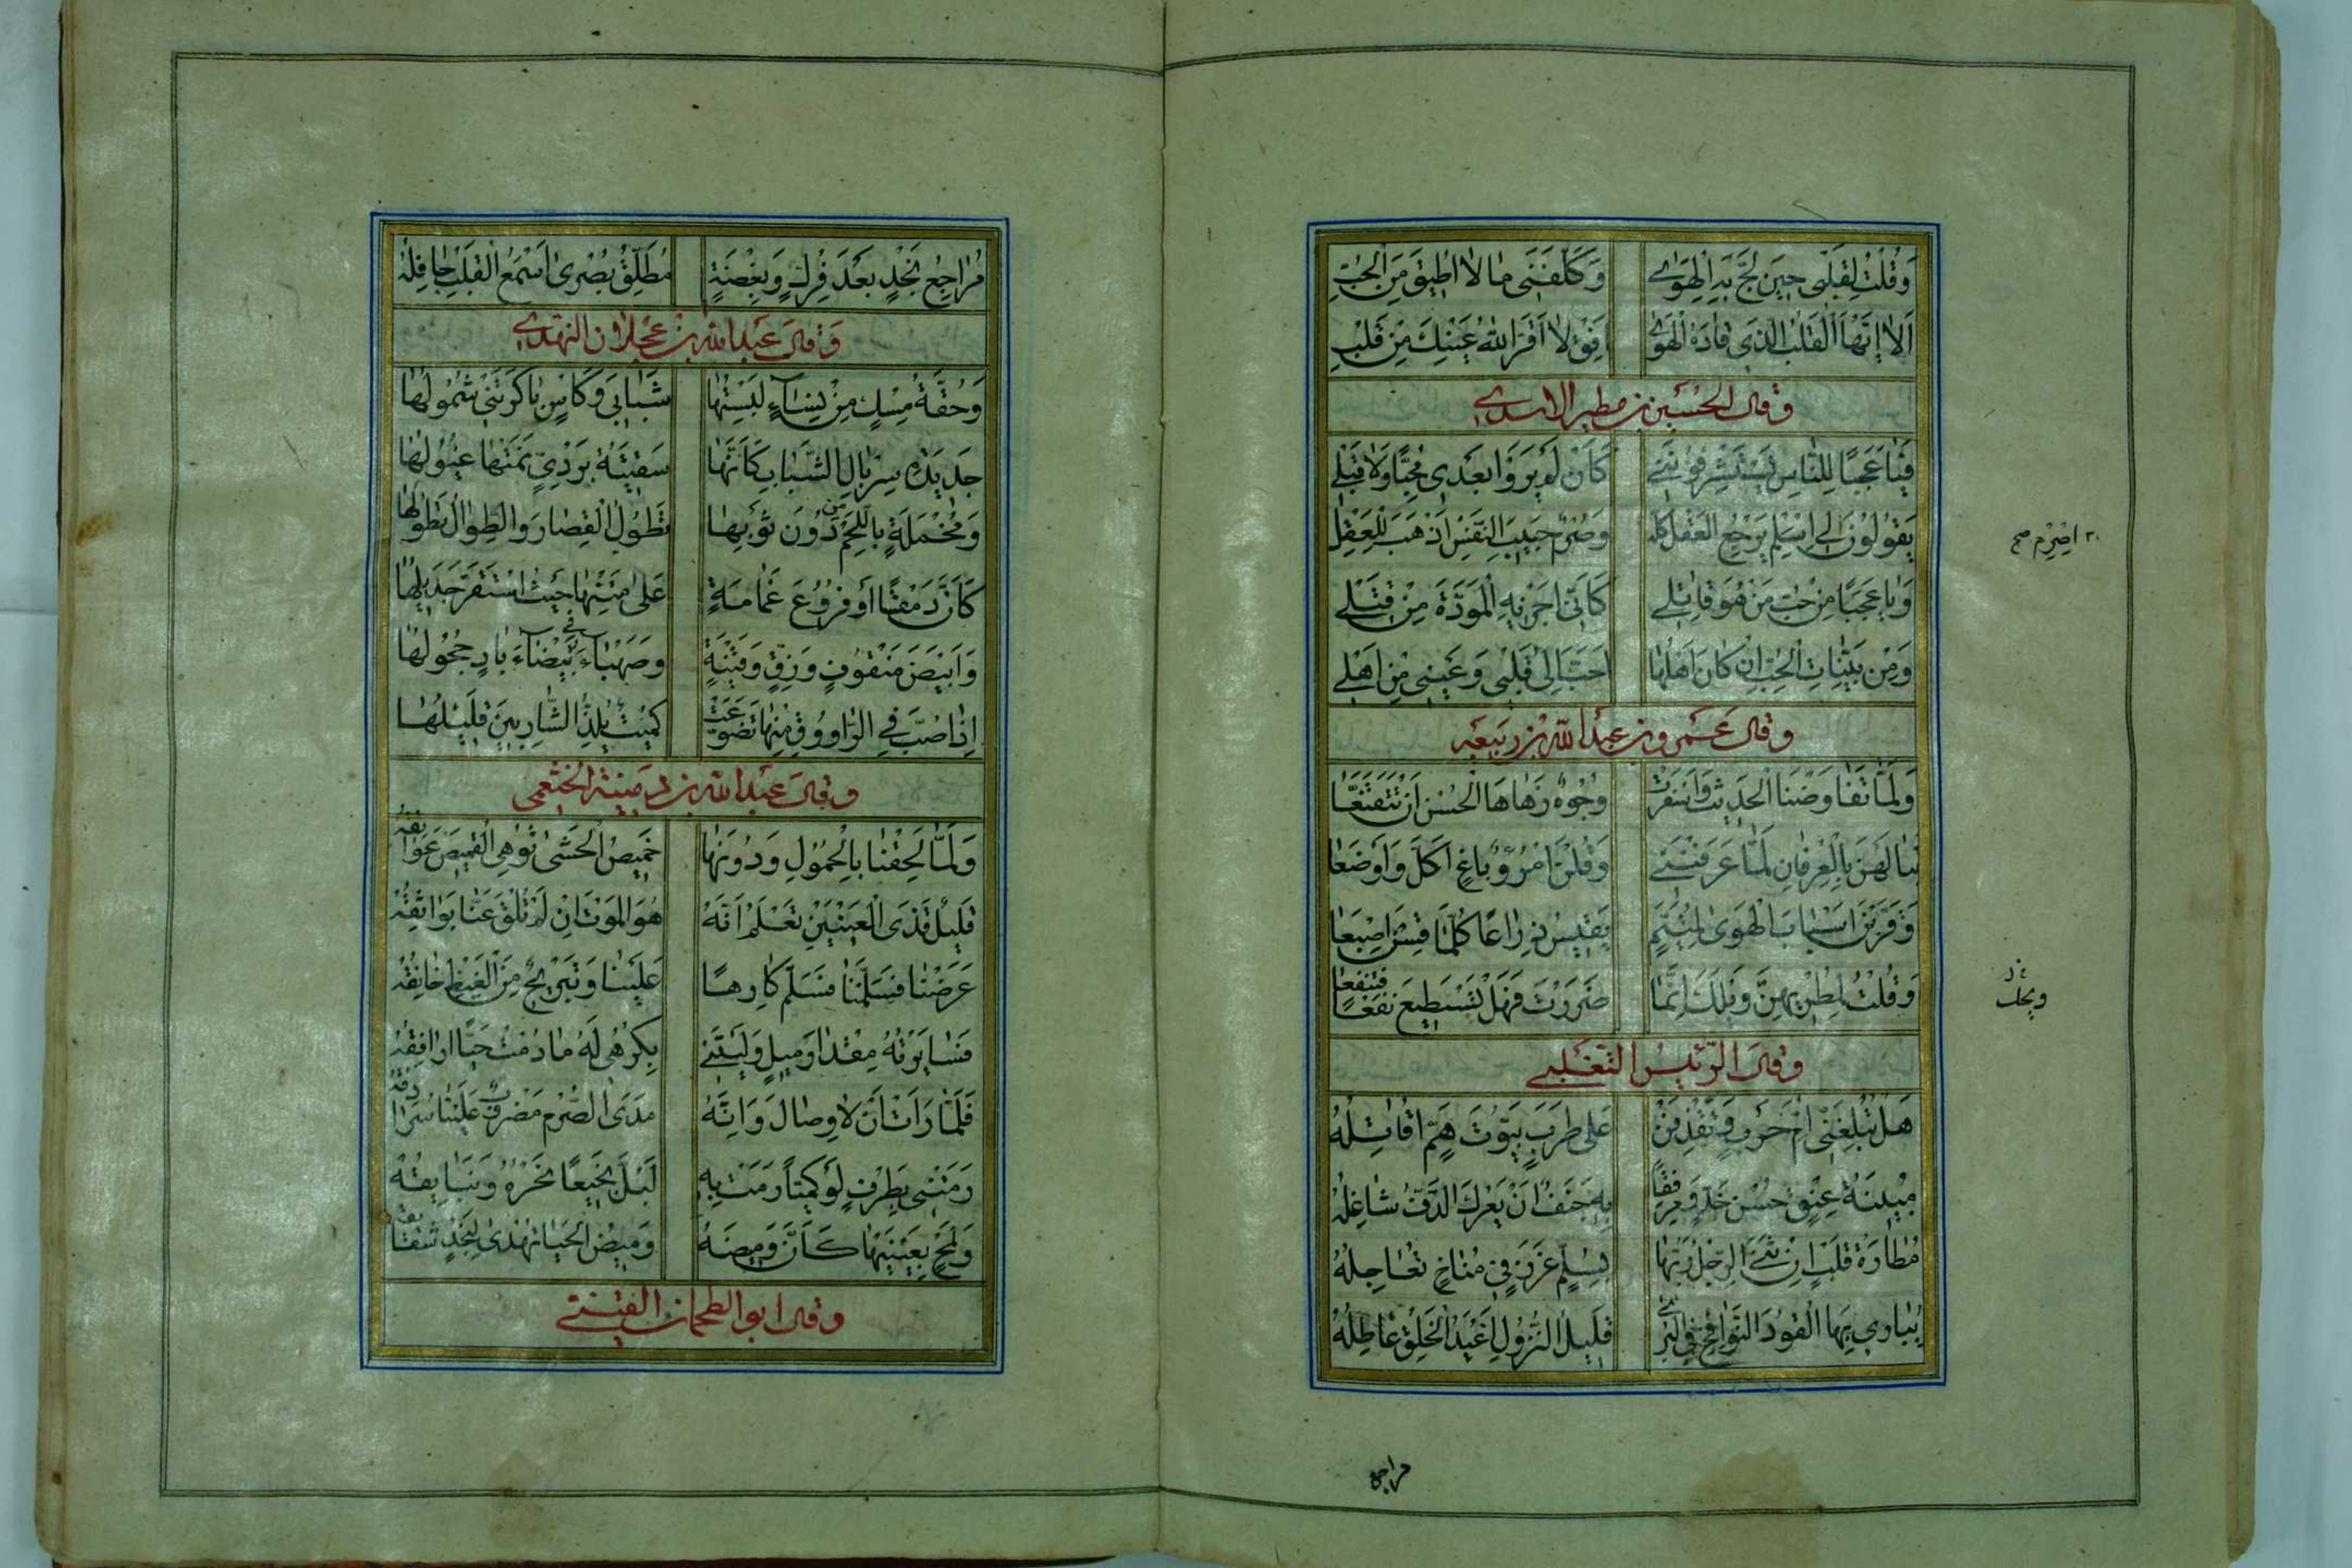 وَقُلْتُ لِقَلْبِی حِینَ لَجَّ بِهِ الْهَوٰی وَکَلَّفَنِی مَا لَا اُطِیقُ مِنَ الْحُبِّ
اَلَا اَیُّهَا الْقَلْبُ الَّذِی قَادَهُ الْهَوٰی اَفِقْ لَا اَقَرَّ اللّٰهُ عَیْنَكَ مِنْ قَلْبِ
وقال الحُسَین بن مطیر الاسدی
فَیَا عَجَبًا لِلنَّاسِ یَسْتَشْرِفُونَنِی کَاَنْ لَمْ یَرَوْا بَعْدِی مُحِبًّا وَلَا قَبْلِی
یَقُولُونَ لِی اِسْلِمْ یَرْجِعِ الْعَقْلُ کُلُّهُ وَصُرْمُ حَبِیبِ النَّفْسِ اَذْهَبُ لِلْعَقْلِ
اصْرِمْ صح
وَیَا عَجَبًا مِنْ حُبِّ مَنْ هُوَ قَاتِلِی کَاَنِّی اَجْزِیهِ الْمَوَدَّةَ مِنْ قَتْلِی
وَمِنْ بَیِّنَاتِ الْحُبِّ اِنْ کَانَ اَهْلُهَا اَحَبَّ اِلٰی قَلْبِی وَعَیْنِی مِنْ اَهْلِی
وقال عَمرو بن عبد اللّٰه بن ربیعه
وَلَمَّا تَفَاوَضْنَا الْحَدِیثَ وَاَسْفَرَتْ وُجُوهٌ زَهَاهَا الْحُسْنُ اَنْ تَتَقَنَّعَا
تَبَالَهْنَ بِالْعِرْفَانِ لَمَّا عَرَفْنَنِی وَقُلْنَ امْرُؤٌ بَاغٍ اَکَلَّ وَاَوْضَعَا
وَقَرَّبْنَ اَسْبَابَ الْهَوٰی لِمُتَیَّمٍ یَقِیسُ ذِرَاعًا کُلَّمَا قِسْنَ اِصْبَعَا
وَقُلْتُ لِمُطْرِیهِنَّ وَیْلَكَ اِنَّمَا ضَرَرْتَ فَهَلْ تَسْتَطِیعُ نَفْعًا فَتَنْفَعَا
ویحك
وقال الرئیس التغلبی
هَلْ تُبْلِغَنِّی اُمَّ حَرْبٍ وَتَقْذِفَنْ عَلٰی طَرَبٍ بَیُّوتَ هَمٍّ اُقَاتِلُهْ
مُبِینَةُ عِتْقٍ حُسْنَ خَدٍّ وَمِرْفَقًا بِهِ جَنَفٌ اَنْ یَعْرُكَ الدَّفَّ شَاغِلُهْ
مُطَارَةُ قَلْبٍ اِنْ ثَنَی الرِّجْلَ رَبُّهَا بِسُلَّمِ غَرْزٍ فِی مُنَاخٍ تُعَاجِلُهْ
یُبَارِی بِهَا الْقُودَ النَّوَافِخَ فِی الْبُرٰی قَلِیلُ النُّزُولِ اَغْیَدُ الْخَلْقِ عَاطِلُهْ
مراجع
مُرَاجِعُ نَجْدٍ بَعْدَ فِرْكٍ وَبِغْضَةٍ مُطَلِّقُ بُصْرٰی اَسْمَعُ الْقَلْبِ جَافِلُهْ
وَقال عَبد اللّٰه بن عَجلان النهدی
وَحُقَّةِ مِسْكٍ مِنْ نِسَاءٍ لَبِسْتُهَا شَبَابِی وَکَاْسٍ بَاکَرَتْنِی شَمُولُهَا
جَدِیدَةُ سِرْبَالِ الشَّبَابِ کَاَنَّهَا سَقِیَّةُ بَرْدِیٍّ نَمَتْهَا غُیُولُهَا
وَمُخْمَلَةٍ بِاللَّحْمِ مِنْ دُونِ ثَوْبِهَا تَطُولُ الْقِصَارَ وَالطِّوَالُ تَطُولُهَا
کَاَنَّ دِمَقْسًا اَوْ فُرُوعَ غَمَامَةٍ عَلٰی مَتْنِهَا حَیْثُ اسْتَقَرَّ جَدِیلُهَا
وَاَبْیَضَ مَنْقُوفٍ وَزِقٍّ وَقَیْنَةٍ وَصَهْبَاءَ فِی بَیْضَاءَ بَادٍ حُجُولُهَا
اِذَا صُبَّ فِی الرَّاوُوقِ مِنْهَا تَضَوَّعَتْ کُمَیْتٌ یُلِذُّ الشَّارِبِینَ قَلِیلُهَا
وقال عَبد اللّٰه بن دمینة الخثعمی
وَلَمَّا لَحِقْنَا بِالْحُمُولِ وَدُونَهَا خَمِیصُ الْحَشٰی تُوهِی الْقَمِیصَ عَوَاتِقُهْ
قَلِیلُ قَذَی الْعَیْنَیْنِ تَعْلَمُ اَنَّهُ هُوَ الْمَوْتُ اِنْ لَمْ تُلْقَ عَنَّا بَوَائِقُهْ
عَرَضْنَا فَسَلَّمْنَا فَسَلَّمَ کَارِهًا عَلَیْنَا وَتَبْرِیحٌ مِنَ الْغَیْظِ خَانِقُهْ
فَسَایَرْتُهُ مِقْدَارَ مِیلٍ وَلَیْتَنِی بِکُرْهِی لَهُ مَا دُمْتُ حَیًّا اُرَافِقُهْ
فَلَمَّا رَاَتْ اَنْ لَا وِصَالَ وَاَنَّهُ مَدَی الصُّرْمِ مَضْرُوبٌ عَلَیْنَا سُرَادِقُهْ
رَمَتْنِی بِطَرْفٍ لَوْ کَمِیًّا رَمَتْ بِهِ لَبُلَّ نَجِیعًا نَحْرُهُ وَبَنَایِقُهْ
وَلَمْحٍ بِعَیْنَیْهَا کَاَنَّ وَمِیضَهُ وَمِیضُ الْحَیَا تُهْدٰی لِنَجْدٍ شَقَایِقُهْ
وقال ابو الطمحان القینی